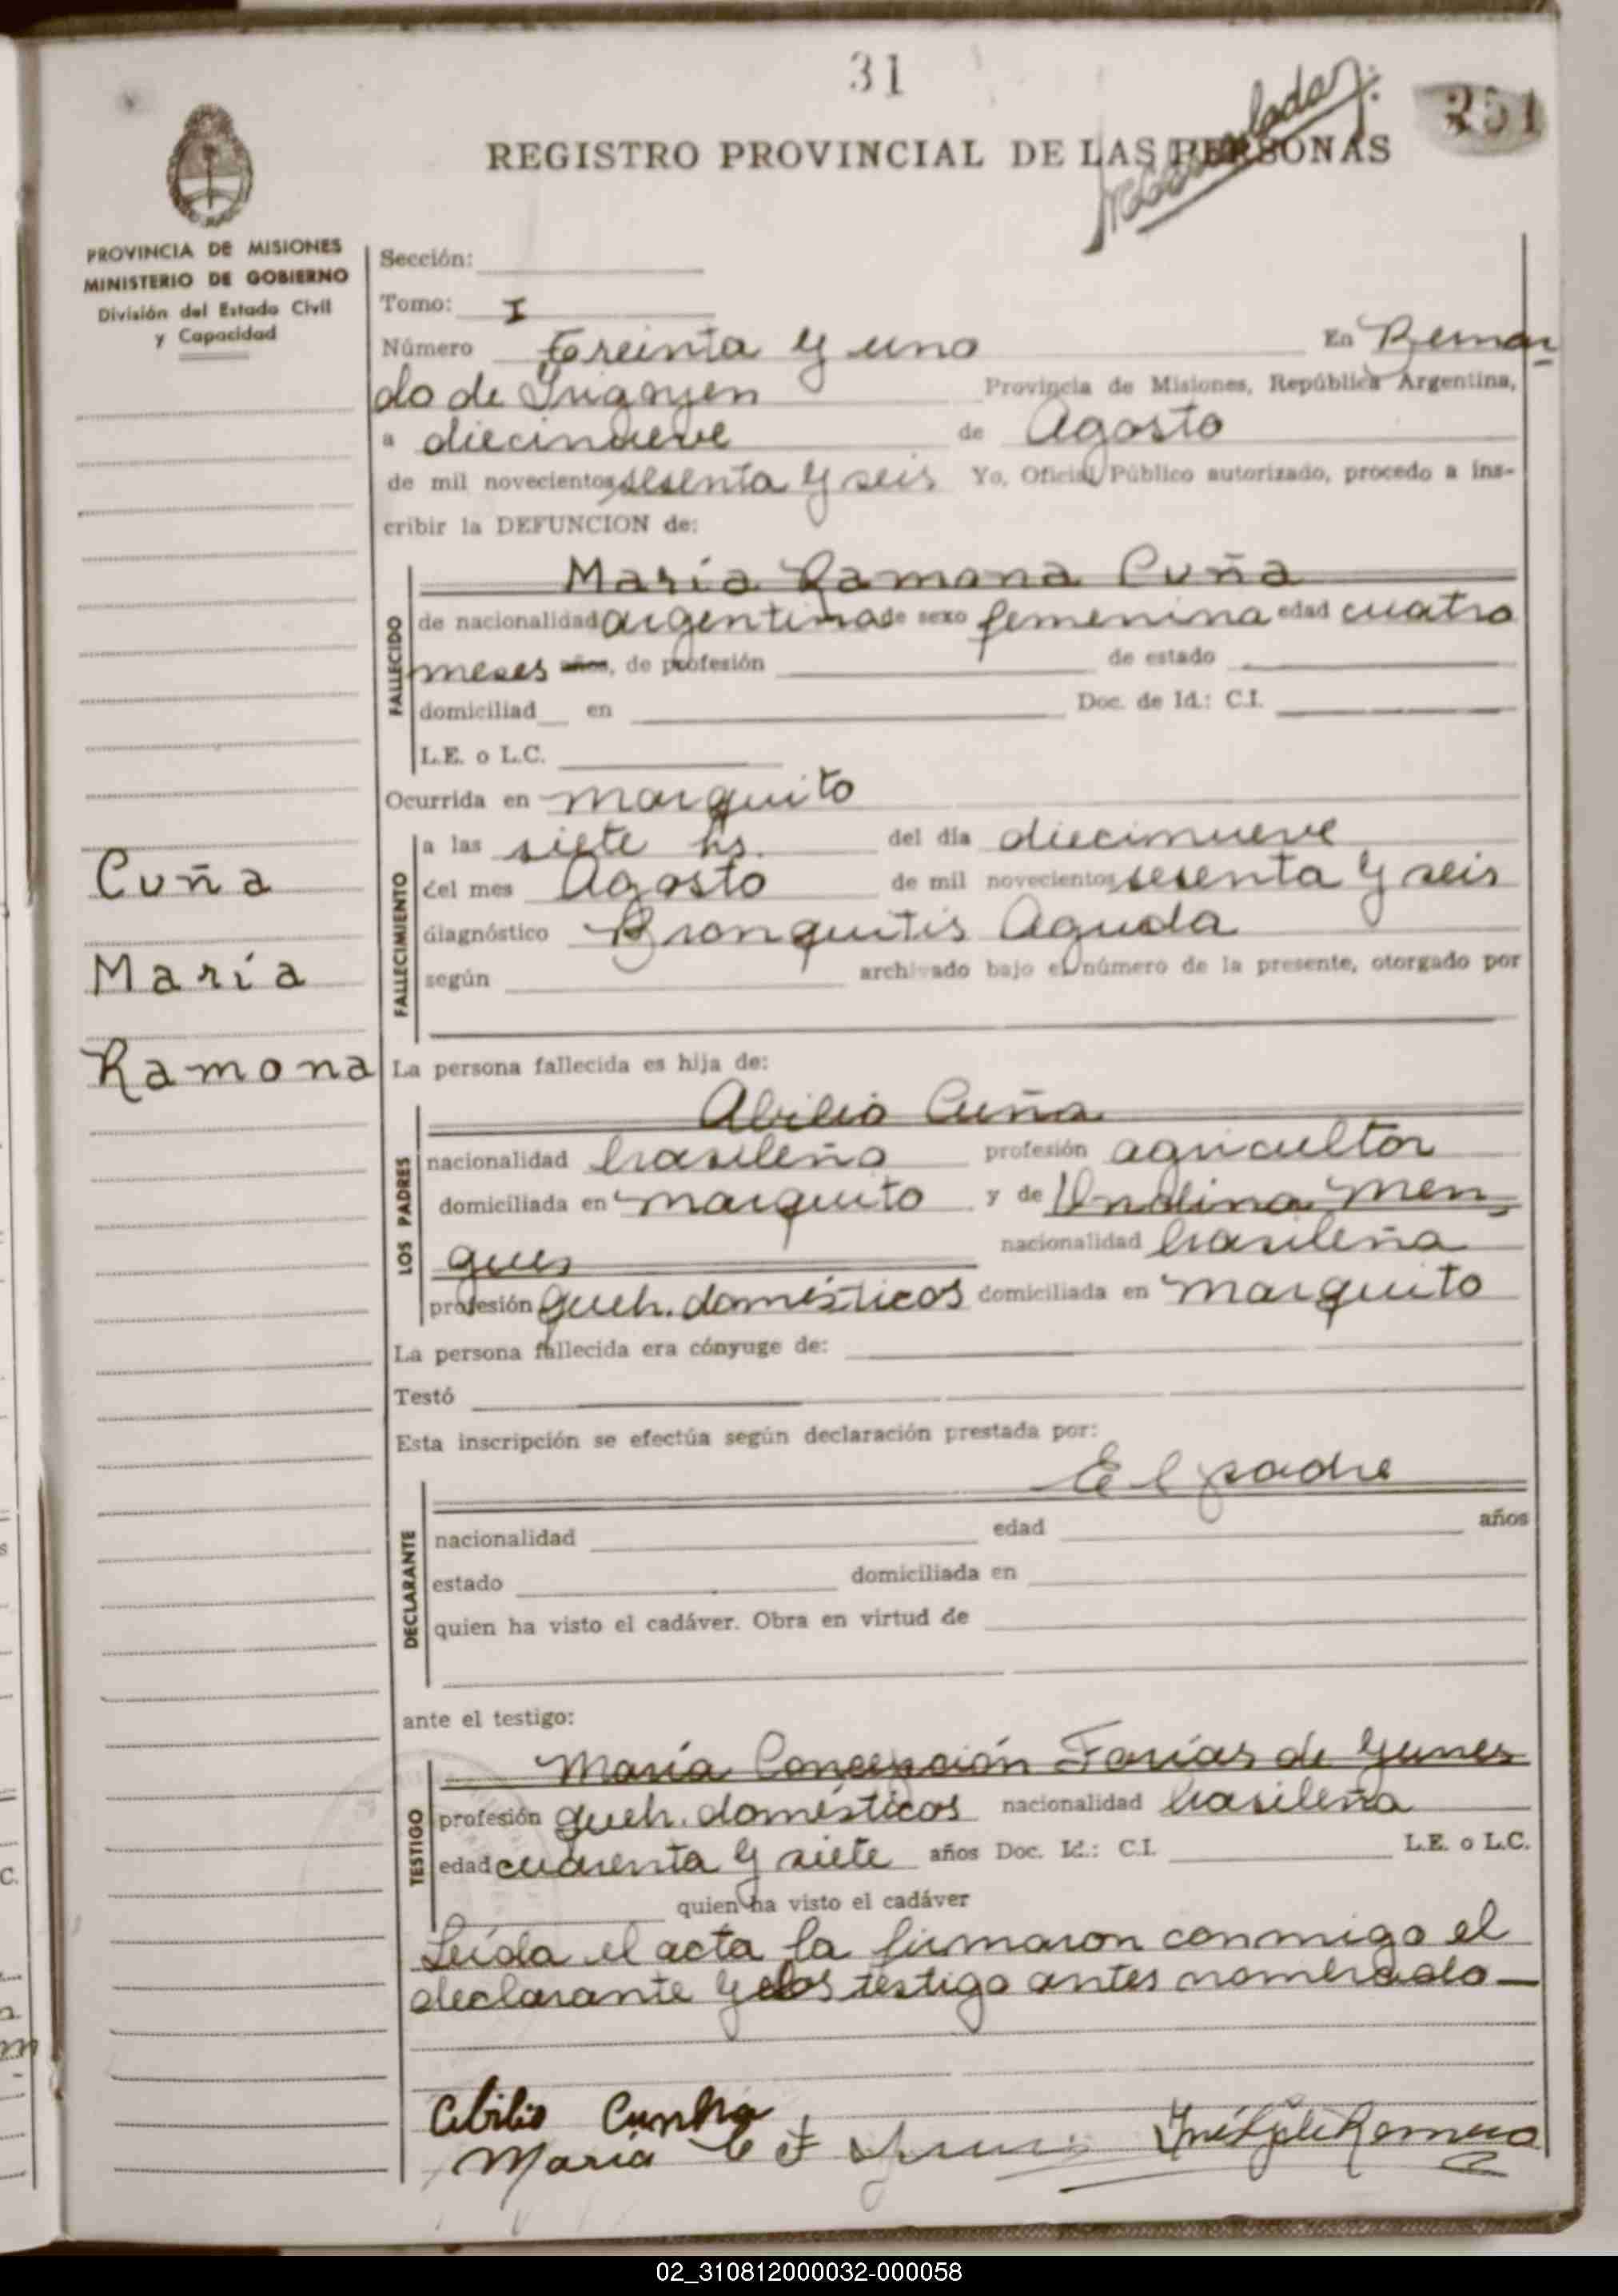 31
251
REGISTRO PROVINCIAL DE LAS PERSONAS
PROVINCIA DE MISIONES
MINISTERIO DE GOBIERNO
División del Estado Civil
y Capacidad
Sección:
Tomo: I
Número Treinta y uno En Bernar
do de Irigoyen Provincia de Misiones, República Argentina,
a diecinueve de Agosto
de mil novecientos sesenta y seis Yo, Oficial Público autorizado, procedo a ins-
cribir la DEFUNCION de:
María Ramona Cuña
FALLECIDO
de nacionalidad argentina de sexo femenina edad cuatro
meses años, de profesión de estado
domiciliad en Doc. de Id.: C.I.
L.E. o L.C.
Ocurrida en Marquito
FALLECIMIENTO
a las siete hs. del día diecinueve
del mes Agosto de mil novecientos sesenta y seis
diagnóstico Bronquitis Aguda
según archivado bajo el número de la presente, otorgado por
Cuña
María
Ramona
La persona fallecida es hija de:
Abilio Cuña
LOS PADRES
nacionalidad brasileño profesión agricultor
domiciliada en Marquito y de Undina Men
gues nacionalidad brasileña
profesión queh. domésticos domiciliada en Marquito
La persona fallecida era cónyuge de:
Testó
Esta inscripción se efectúa según declaración prestada por:
El padre
DECLARANTE
nacionalidad edad años
estado domiciliada en
quien ha visto el cadáver. Obra en virtud de
ante el testigo:
María Concepción Farías de Yunes
TESTIGO
profesión queh. domésticos nacionalidad brasileña
edad cuarenta y siete años Doc. Id.: C.I. L.E. o L.C.
quien ha visto el cadáver
Leída el acta la firmaron conmigo el
declarante y los testigo antes nombrado
Abilio Cunha
Maria C F
02_310812000032-000058